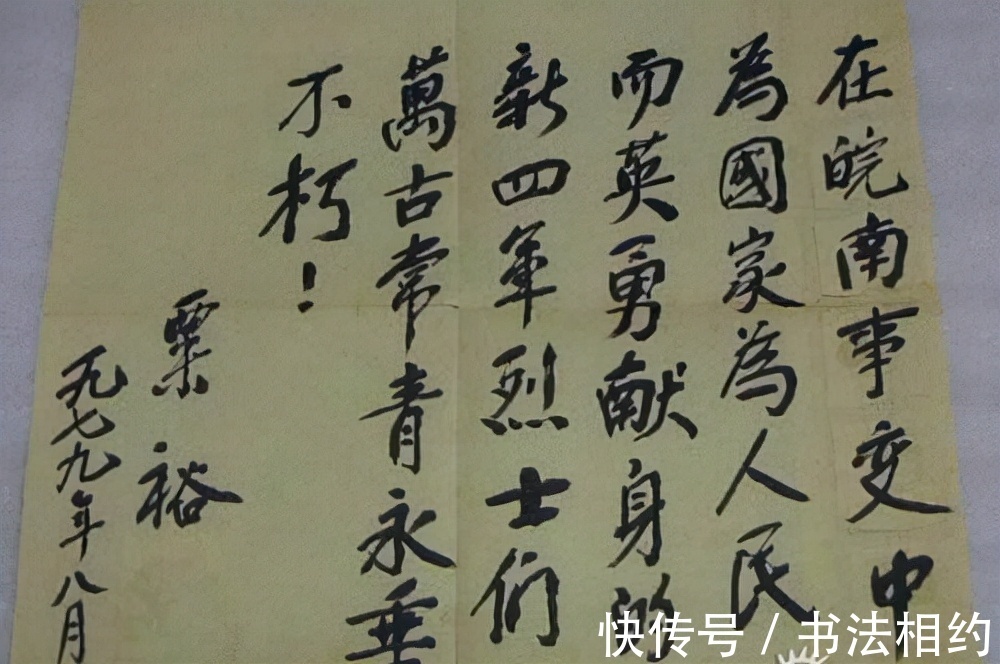 在皖南事变中
為國家為人民
而英勇献身的
新四军烈士们
萬古常青永垂
不朽！
粟裕
一九七九年八月
快传号 / 书法相约